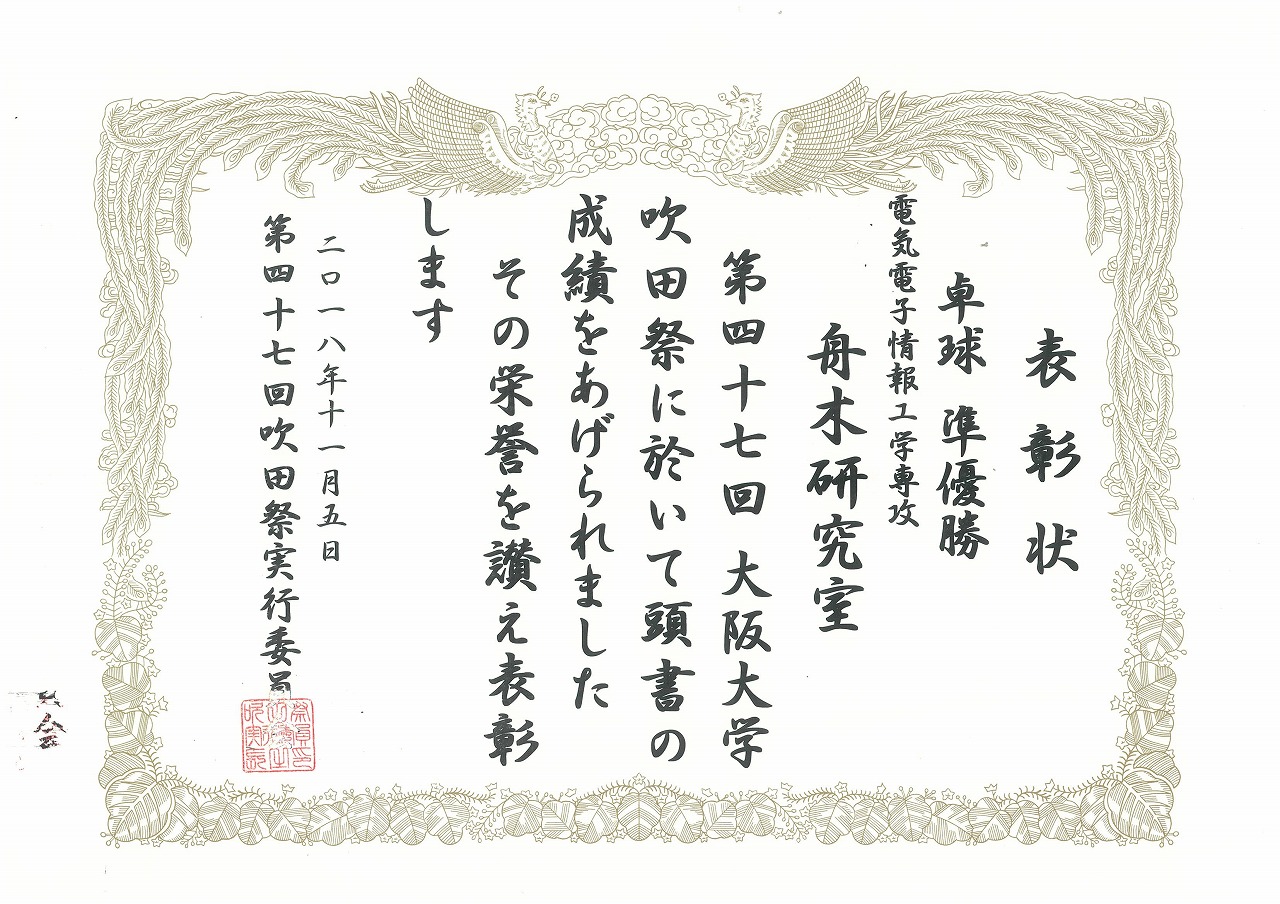 表彰状
卓球 準優勝
電気電子情報工学専攻
舟木研究室
第四十七回 大阪大学
吹田祭に於いて頭書の
成績をあげられました
その栄誉を讃え表彰
します
二〇一八年十一月五日
第四十七回吹田祭実行委員